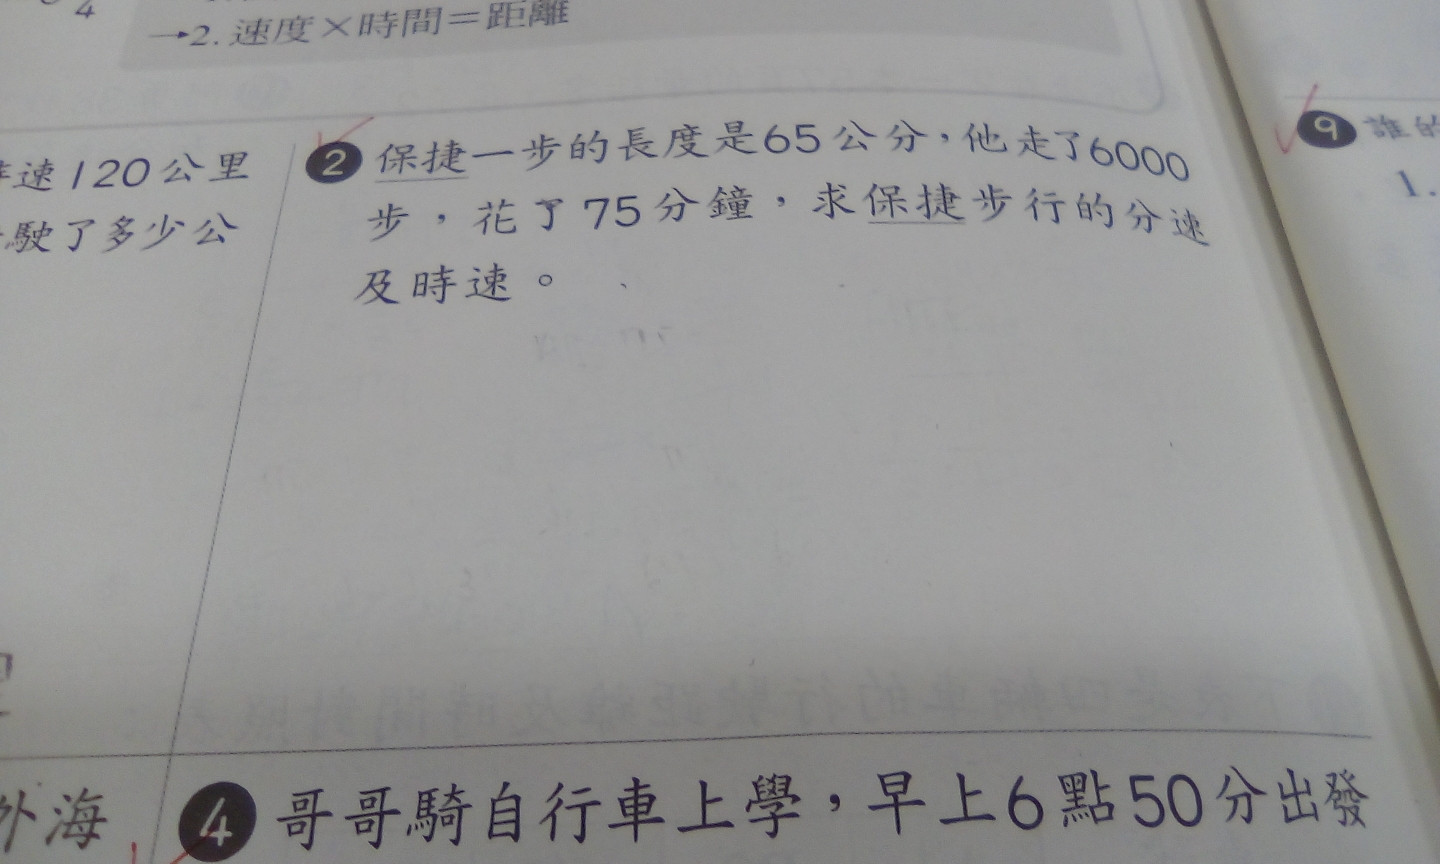 4
→2. 速度×時間=距離
速120公里
駛了多少公
2 保捷一步的長度是65公分，他走了6000
步，花了75分鐘，求保捷步行的分速
及時速。
9 誰的
1.
外海
4 哥哥騎自行車上學，早上6點50分出發